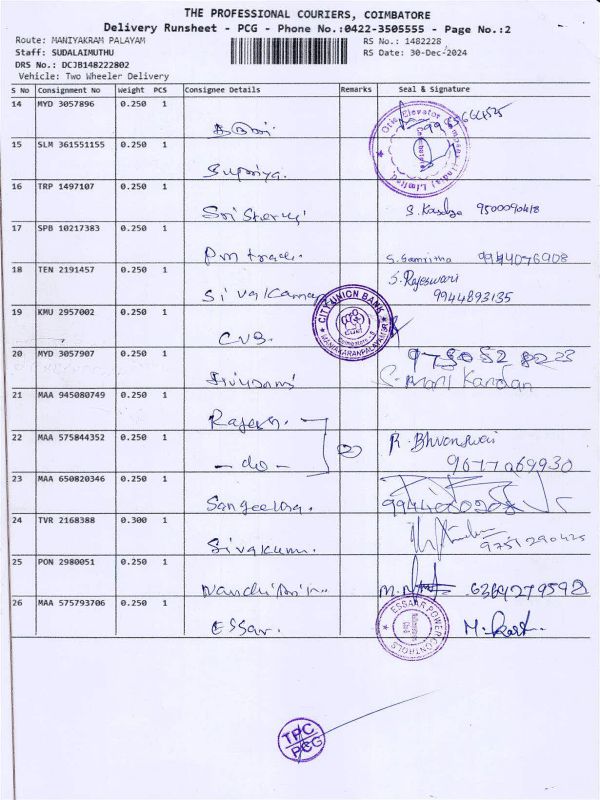 THE PROFESSIONAL COURIERS, COIMBATORE
Delivery Runsheet - PCG - Phone No.:0422-3505555 - Page No.:2
Route: MANIYAKRAM PALAYAM
RS No.: 1482228
Staff: SUDALAIMUTHU
RS Date: 30-Dec-2024
DRS No.: DCJB148222802
Vehicle: Two Wheeler Delivery
S No Consignment No Weight PCS Consignee Details Remarks Seal & Signature
14 MYD 3057896 0.250 1
Otis Elevator Company (India) Limited
15 SLM 361551155 0.250 1
Supriya.
16 TRP 1497107 0.250 1
9500090418
17 SPB 10217383 0.250 1
Pm trade. 9944076908
18 TEN 2191457 0.250 1
Sivakamar S. Rajeswari
9944893135
19 KMU 2957002 0.250 1
CUB.
CITY UNION BANK
20 MYD 3057907 0.250 1
S. Mani Kandan
21 MAA 945080749 0.250 1
Rajesh.
22 MAA 575844352 0.250 1
- do - 9677069930
23 MAA 650820346 0.250 1
Sangeetha.
24 TVR 2168388 0.300 1
Sivakumar. 9751290425
25 PON 2980051 0.250 1
6369279598
26 MAA 575793706 0.250 1
Essar.
ESSAR POWER CONTROLS
TPC
PCG